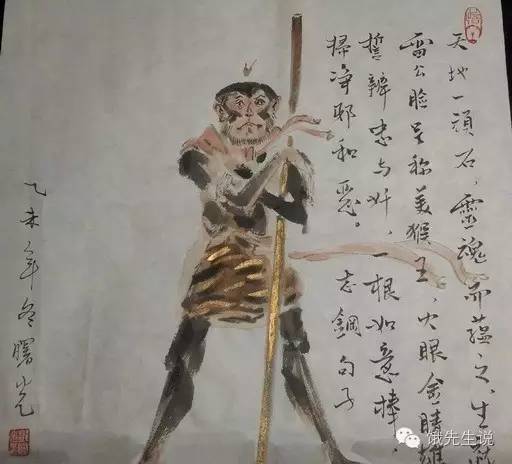 天地一顽石，灵魂而蕴之，生就
雷公脸足称美猴王，火眼金睛雄
誓辨忠与奸，一根如意棒，
扫净邪和恶。志钢句子
乙未年冬曙光
饿先生说